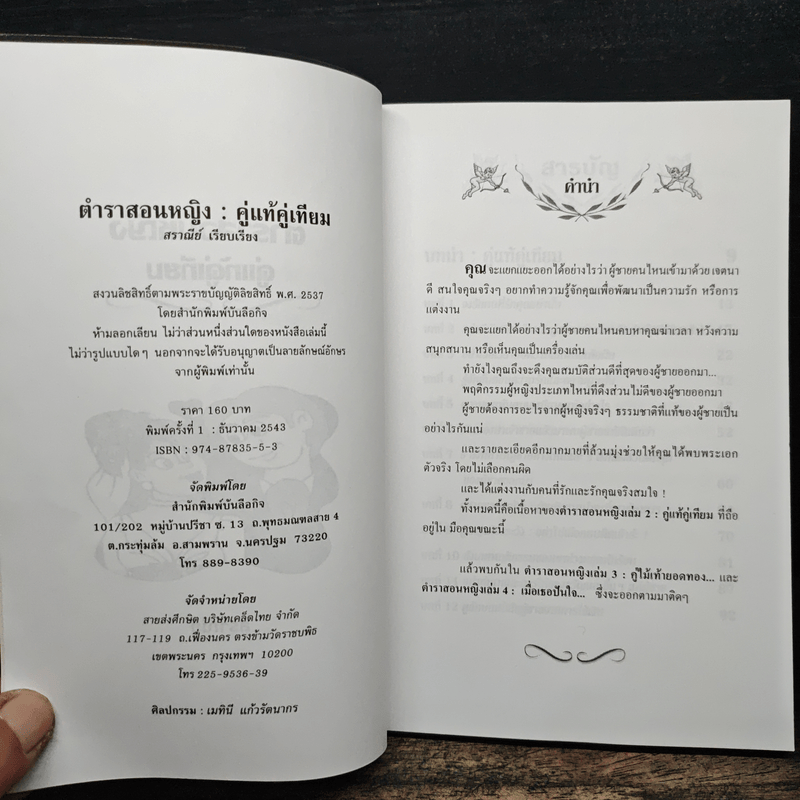 ตำราสอนหญิง : คู่แท้คู่เทียม
สราณีย์ เรียบเรียง
สงวนลิขสิทธิ์ตามพระราชบัญญัติลิขสิทธิ์ พ.ศ. 2537
โดยสำนักพิมพ์บันลือกิจ
ห้ามลอกเลียน ไม่ว่าส่วนหนึ่งส่วนใดของหนังสือเล่มนี้
ไม่ว่ารูปแบบใดๆ นอกจากจะได้รับอนุญาตเป็นลายลักษณ์อักษร
จากผู้พิมพ์เท่านั้น
ราคา 160 บาท
พิมพ์ครั้งที่ 1 : ธันวาคม 2543
ISBN : 974-87835-5-3
จัดพิมพ์โดย
สำนักพิมพ์บันลือกิจ
101/202 หมู่บ้านปรีชา ซ. 13 ถ.พุทธมณฑลสาย 4
ต.กระทุ่มล้ม อ.สามพราน จ.นครปฐม 73220
โทร 889-8390
จัดจำหน่ายโดย
สายส่งศึกษิต บริษัทเคล็ดไทย จำกัด
117-119 ถ.เฟื่องนคร ตรงข้ามวัดราชบพิธ
เขตพระนคร กรุงเทพฯ 10200
โทร 225-9536-39
ศิลปกรรม : เมทินี แก้วรัตนากร
คำนำ
คุณจะแยกแยะออกได้อย่างไรว่า ผู้ชายคนไหนเข้ามาด้วย เจตนา
ดี สนใจคุณจริงๆ อยากทำความรู้จักคุณเพื่อพัฒนาเป็นความรัก หรือการ
แต่งงาน
คุณจะแยกได้อย่างไรว่าผู้ชายคนไหนคบหาคุณฆ่าเวลา หวังความ
สนุกสนาน หรือเห็นคุณเป็นเครื่องเล่น
ทำยังไงคุณถึงจะดึงคุณสมบัติส่วนดีที่สุดของผู้ชายออกมา...
พฤติกรรมผู้หญิงประเภทไหนที่ดึงส่วนไม่ดีของผู้ชายออกมา
ผู้ชายต้องการอะไรจากผู้หญิงจริงๆ ธรรมชาติที่แท้ของผู้ชายเป็น
อย่างไรกันแน่
และรายละเอียดอีกมากมายที่ล้วนมุ่งช่วยให้คุณได้พบพระเอก
ตัวจริง โดยไม่เลือกคนผิด
และได้แต่งงานกับคนที่รักและรักคุณจริงสมใจ !
ทั้งหมดนี้คือเนื้อหาของตำราสอนหญิงเล่ม 2 : คู่แท้คู่เทียม ที่ถือ
อยู่ใน มือคุณขณะนี้
แล้วพบกันใน ตำราสอนหญิงเล่ม 3 : คู่ไม้เท้ายอดทอง... และ
ตำราสอนหญิงเล่ม 4 : เมื่อเธอปันใจ... ซึ่งจะออกตามมาติดๆ